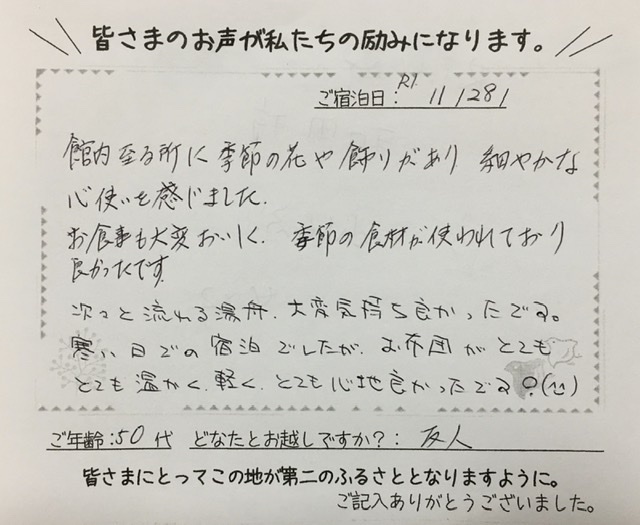 皆さまのお声が私たちの励みになります。
ご宿泊日: R1. 11/28/
館内至る所に季節の花や飾りがあり 細やかな
心使いを感じました。
お食事も大変おいしく、季節の食材が使われており
良かったです。
次々と流れる湯舟、大変気持ち良かったです。
寒い日での宿泊でしたが、お布団がとても
とても温かく、軽く、とても心地良かったです(^^)
ご年齢:50代 どなたとお越しですか?: 友人
皆さまにとってこの地が第二のふるさととなりますように。
ご記入ありがとうございました。